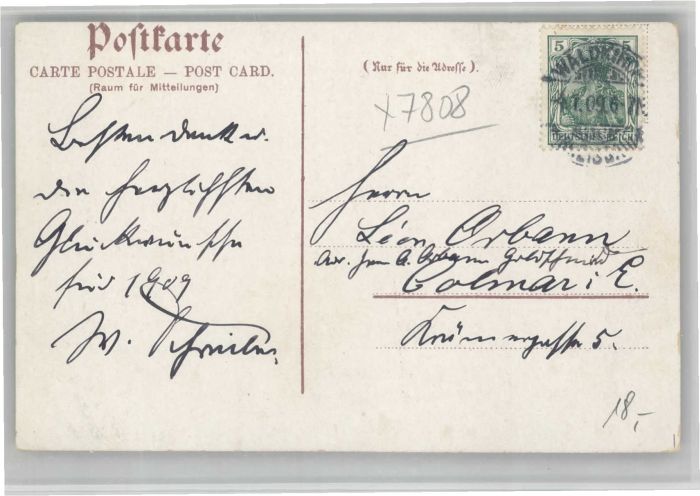 Postkarte
CARTE POSTALE — POST CARD.
(Raum für Mitteilungen)
Besten Dank u.
die herzlichsten
Glückwünsche
für 1909
W. Schreiber
(Nur für die Adresse).
x7808
5 5
DEUTSCHES REICH
WALDKIRCH
Herrn
Léon Orbann
Goldschmied
Colmar i. E.
Krämergasse 5.
18,-